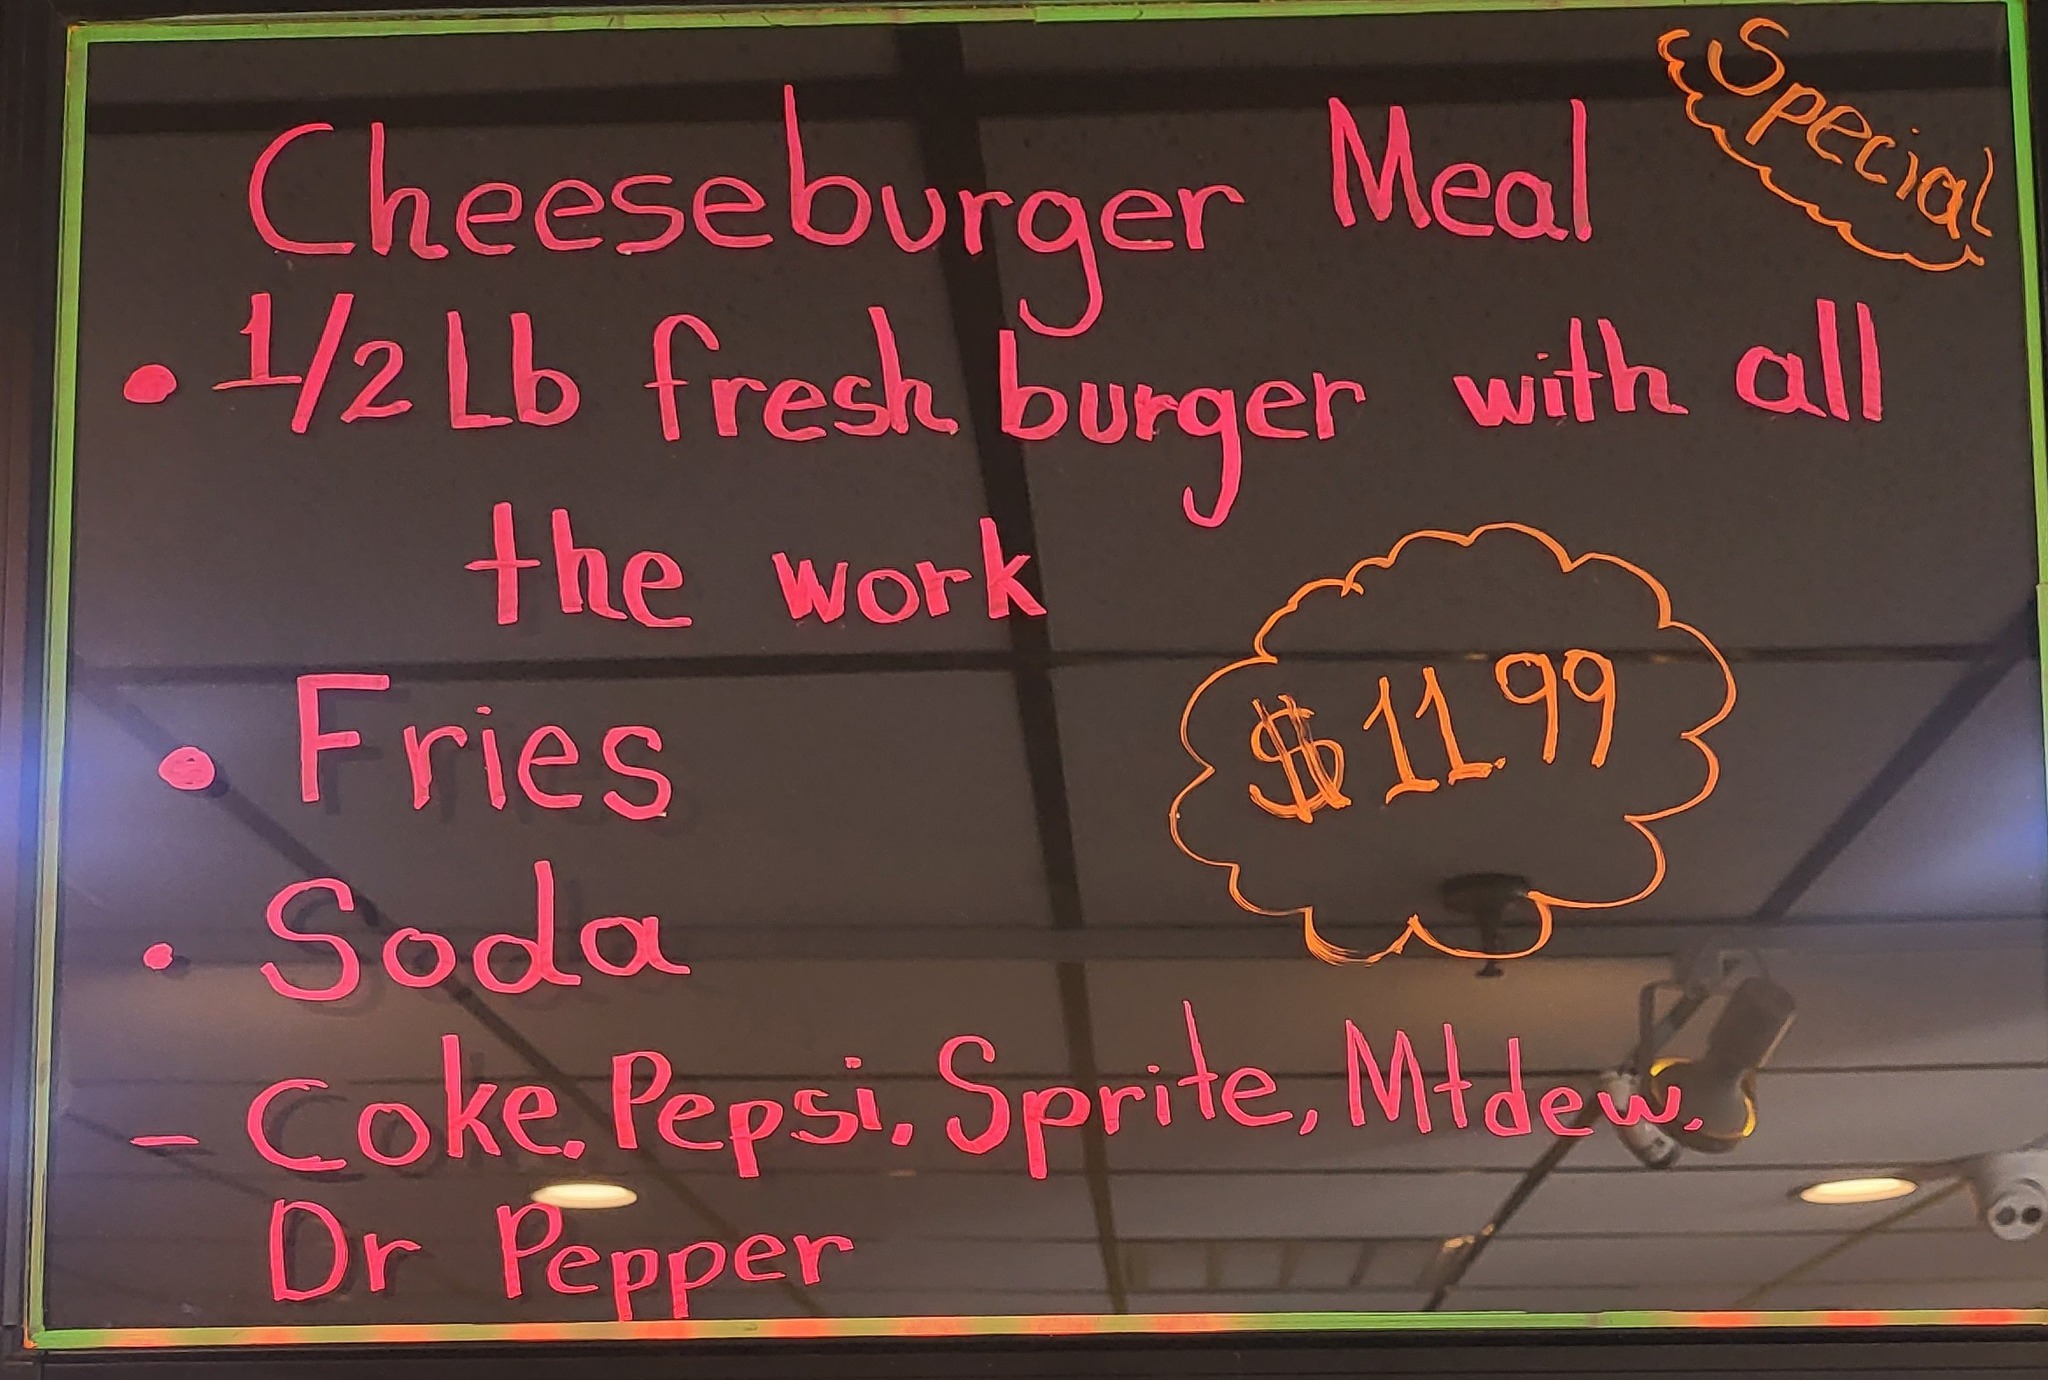 Special
Cheeseburger Meal
• 1/2 Lb fresh burger with all
the work
• Fries
$11.99
• Soda
- Coke. Pepsi. Sprite, Mtdew,
Dr Pepper